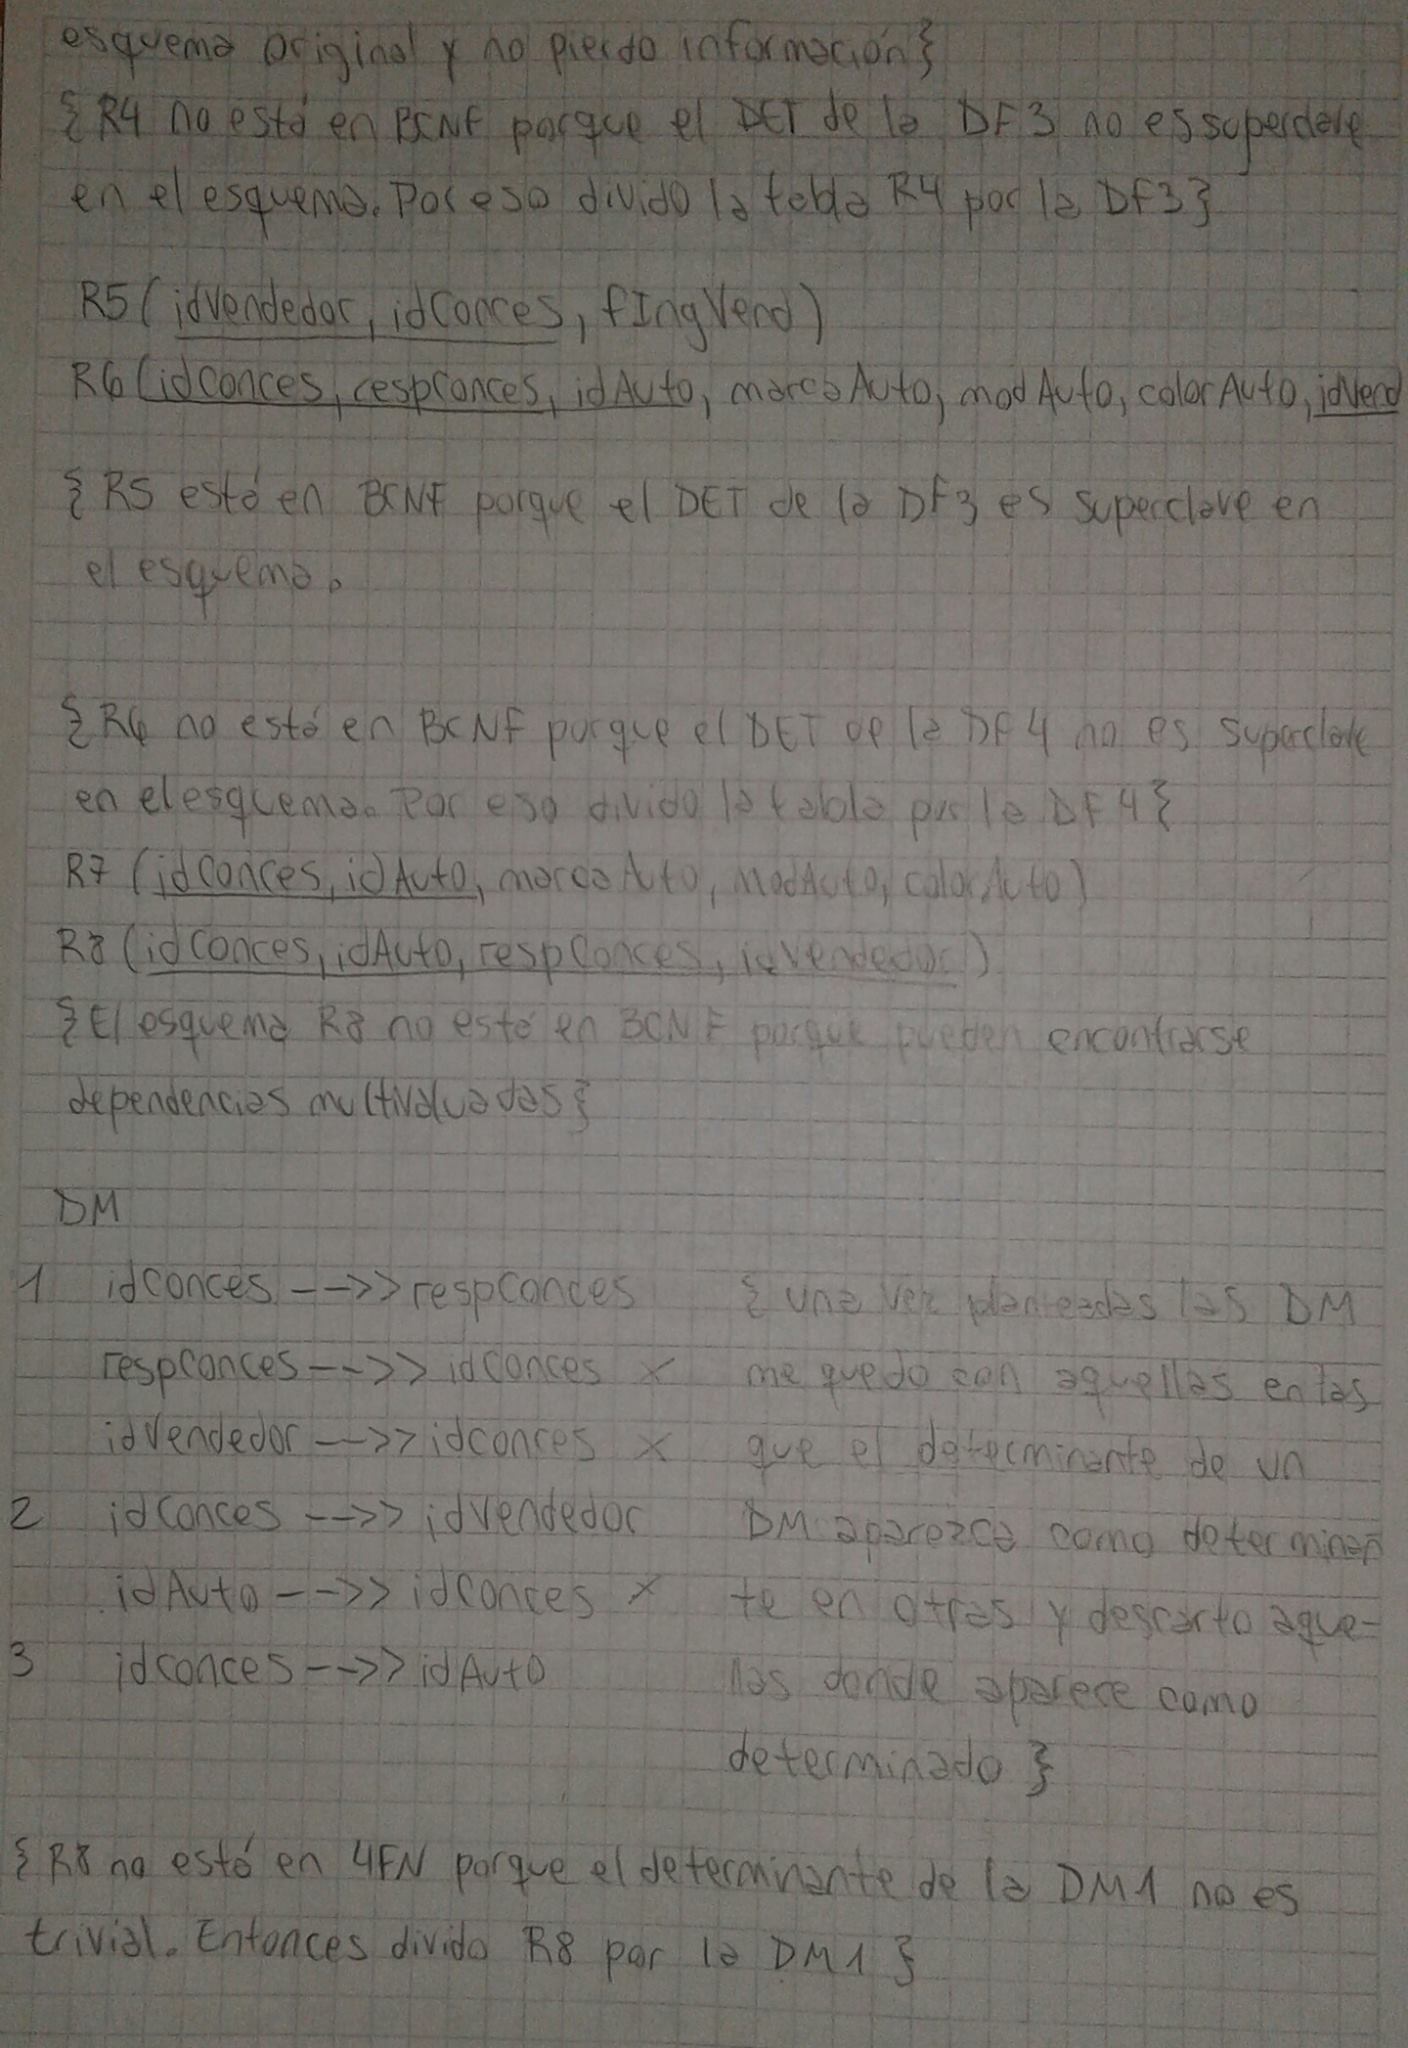 esquema original y no pierdo información}
{R4 no está en BCNF porque el DET de la DF3 no es superclave
en el esquema. Por eso divido la tabla R4 por la DF3}
R5 (idVendedor, idConces, fIngVend)
R6 (idConces, respConces, idAuto, marcaAuto, modAuto, colorAuto, idVend
{R5 está en BCNF porque el DET de la DF3 es superclave en
el esquema.
{R6 no está en BCNF porque el DET de la DF4 no es superclave
en el esquema. Por eso divido la tabla por la DF4}
R7 (idConces, idAuto, marcaAuto, modAuto, colorAuto)
R8 (idConces, idAuto, respConces, idVendedor)
{El esquema R8 no esté en BCNF porque pueden encontrarse
dependencias multivaluadas}
DM
1 idConces -->> respConces {una vez planteadas las DM
respConces -->> idConces x me quedo con aquellas en las
idVendedor -->> idConces x que el determinante de un
2 idConces -->> idVendedor DM aparezca como determinan
idAuto -->> idConces x te en otras y descarto aque-
3 idConces -->> idAuto llas donde aparece como
determinado }
{R8 no está en 4FN porque el determinante de la DM1 no es
trivial. Entonces divido R8 por la DM1 }